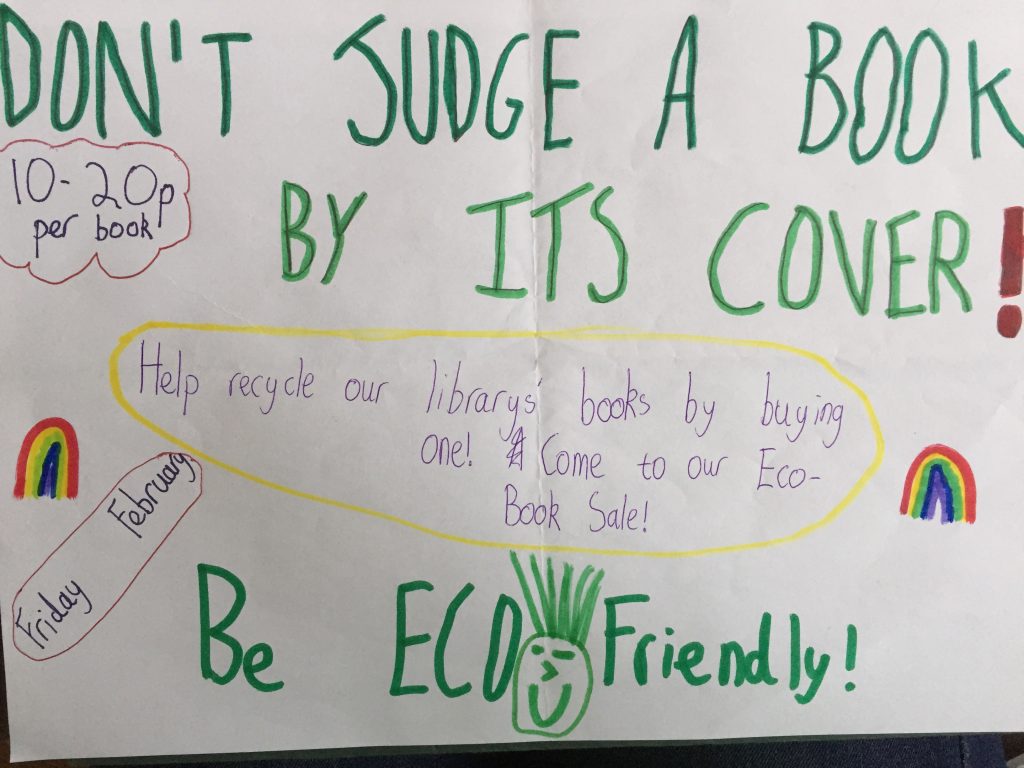 DON'T JUDGE A BOOK
10-20p
per book
BY ITS COVER!
Help recycle our librarys' books by buying
one! Come to our Eco-
Book Sale!
Friday February
Be ECO Friendly!